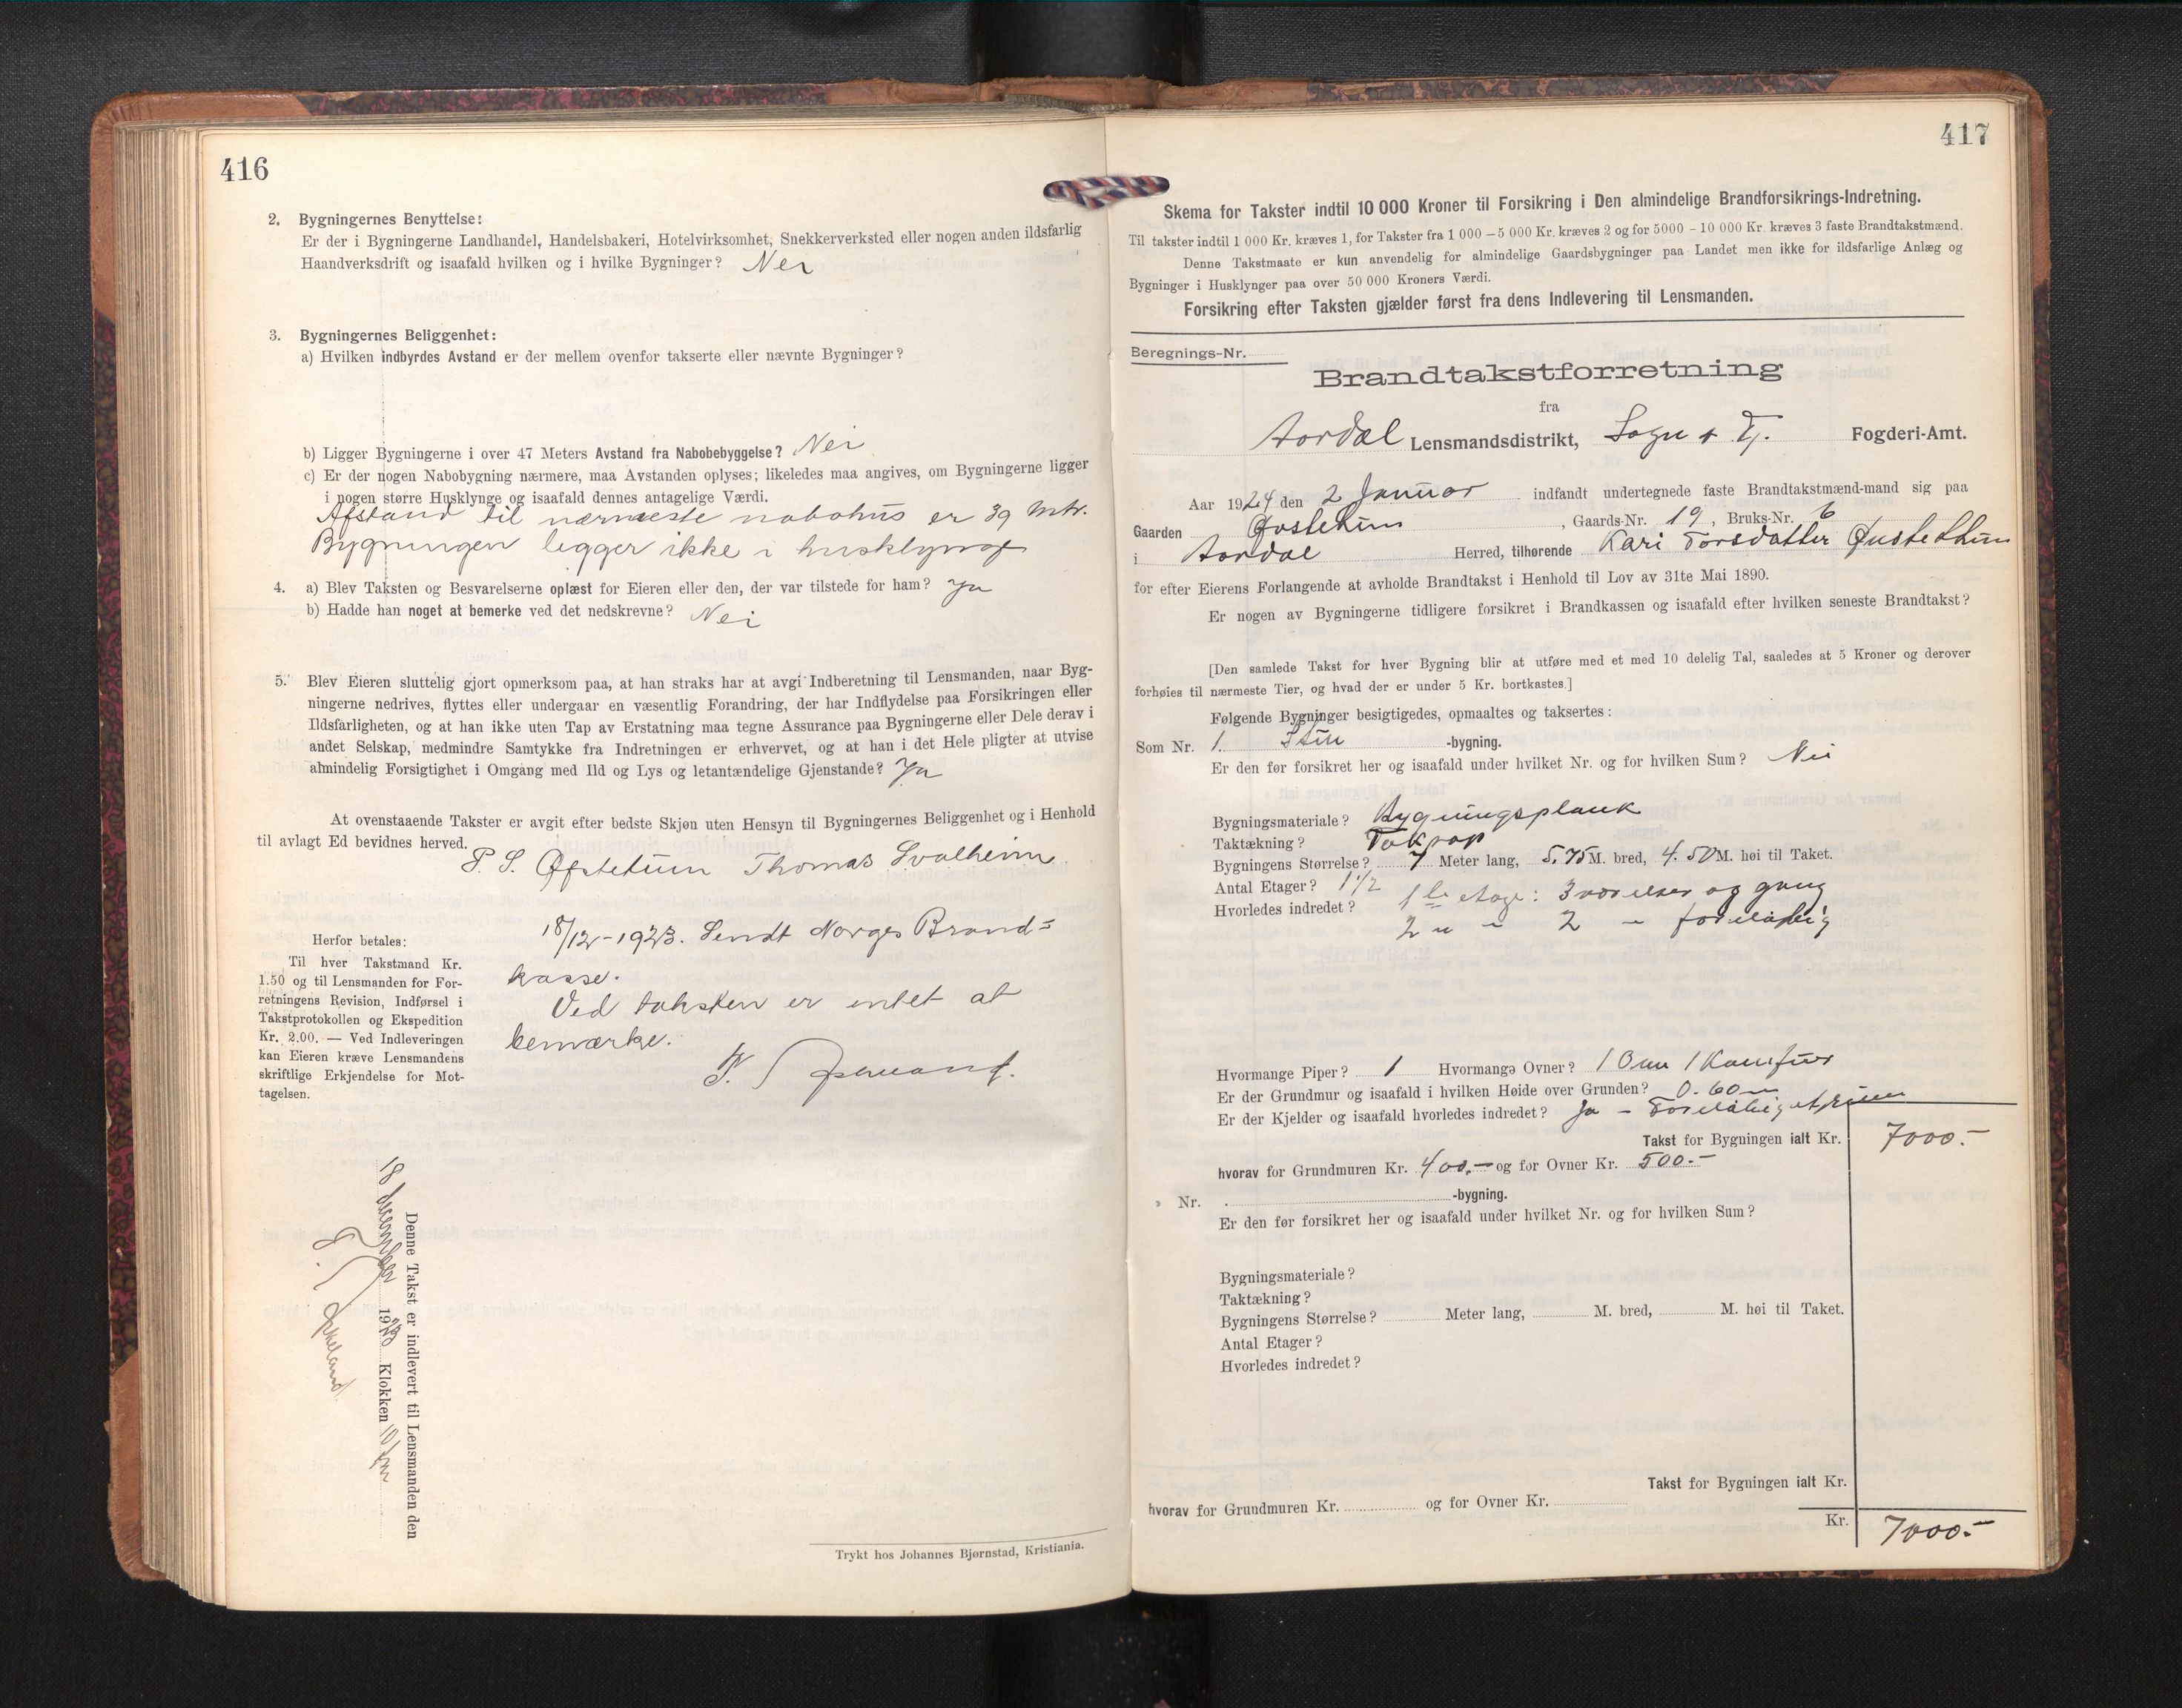 416
2. Bygningernes Benyttelse:
Er der i Bygningerne Landhandel, Handelsbakeri, Hotelvirksomhet, Snekkerverksted eller nogen anden ildsfarlig
Haandverksdrift og isaafald hvilken og i hvilke Bygninger? Nei
3. Bygningernes Beliggenhet:
a) Hvilken indbyrdes Avstand er der mellem ovenfor takserte eller nævnte Bygninger?
b) Ligger Bygningerne i over 47 Meters Avstand fra Nabobebyggelse? Nei
c) Er der nogen Nabobygning nærmere, maa Avstanden oplyses; likeledes maa angives, om Bygningerne ligger
i nogen større Husklynge og isaafald dennes antagelige Værdi.
Afstand til nærmeste nabohus er 39 Mtr.
Bygningen legger ikke i husklynge
4. a) Blev Taksten og Besvarelserne oplæst for Eieren eller den, der var tilstede for ham? Ja
b) Hadde han noget at bemerke ved det nedskrevne? Nei
5. Blev Eieren sluttelig gjort opmerksom paa, at han straks har at avgi Indberetning til Lensmanden, naar Byg-
ningerne nedrives, flyttes eller undergaar en væsentlig Forandring, der har Indflydelse paa Forsikringen eller
Ildsfarligheten, og at han ikke uten Tap av Erstatning maa tegne Assurance paa Bygningerne eller Dele derav i
andet Selskap, medmindre Samtykke fra Indretningen er erhvervet, og at han i det Hele pligter at utvise
almindelig Forsigtighet i Omgang med Ild og Lys og letantændelige Gjenstande? Ja
At ovenstaaende Takster er avgit efter bedste Skjøn uten Hensyn til Bygningernes Beliggenhet og i Henhold
til avlagt Ed bevidnes herved.
P. S. Øfstetum Thomas Svalheim
18/12-1923. Sendt Norges Brand=
kasse.
Ved taksten er intet at
bemærke.
Herfor betales:
Til hver Takstmand Kr.
1.50 og til Lensmanden for For-
retningens Revision, Indførsel i
Takstprotokollen og Ekspedition
Kr. 2.00. — Ved Indleveringen
kan Eieren kræve Lensmandens
skriftlige Erkjendelse for Mot-
tagelsen.
Denne Takst er indlevert til Lensmanden den
18 december 1923 Klokken 10 fm
Trykt hos Johannes Bjørnstad, Kristiania.
417
Skema for Takster indtil 10 000 Kroner til Forsikring i Den almindelige Brandforsikrings-Indretning.
Til takster indtil 1 000 Kr. kræves 1, for Takster fra 1 000 – 5 000 Kr. kræves 2 og for 5000 – 10 000 Kr. kræves 3 faste Brandtakstmænd.
Denne Takstmaate er kun anvendelig for almindelige Gaardsbygninger paa Landet men ikke for ildsfarlige Anlæg og
Bygninger i Husklynger paa over 50 000 Kroners Værdi.
Forsikring efter Taksten gjælder først fra dens Indlevering til Lensmanden.
Beregnings-Nr.
Brandtakstforretning
fra
Aardal Lensmandsdistrikt, Sogn & Fj. Fogderi-Amt.
Aar 1924 den 2 Januar indfandt undertegnede faste Brandtakstmænd-mand sig paa
Gaarden Øvstetun, Gaards-Nr. 19, Bruks-Nr. 6
i Aardal Herred, tilhørende Kari Torsdatter Øustethun
for efter Eierens Forlangende at avholde Brandtakst i Henhold til Lov av 31te Mai 1890.
Er nogen av Bygningerne tidligere forsikret i Brandkassen og isaafald efter hvilken seneste Brandtakst?
[Den samlede Takst for hver Bygning blir at utføre med et med 10 delelig Tal, saaledes at 5 Kroner og derover
forhøies til nærmeste Tier, og hvad der er under 5 Kr. bortkastes.]
Følgende Bygninger besigtigedes, opmaaltes og taksertes:
Som Nr. 1 Stue -bygning.
Er den før forsikret her og isaafald under hvilket Nr. og for hvilken Sum? Nei
Bygningsmateriale? Bygningsplank
Taktækning? Takpap
Bygningens Størrelse? 7 Meter lang, 5.75 M. bred, 4.50 M. høi til Taket.
Antal Etager? 1 1/2
Hvorledes indredet? 1ste etage: 3 værelser og gang
2 " - 2 - foreløbig
Hvormange Piper? 1 Hvormange Ovner? 1 Ovn 1 Komfur
Er der Grundmur og isaafald i hvilken Høide over Grunden? 0.60 m
Er der Kjelder og isaafald hvorledes indredet? Ja -
Takst for Bygningen ialt Kr. 7000.-
hvorav for Grundmuren Kr. 400.- og for Ovner Kr. 500.-
» Nr. -bygning.
Er den før forsikret her og isaafald under hvilket Nr. og for hvilken Sum?
Bygningsmateriale?
Taktækning?
Bygningens Størrelse? Meter lang, M. bred, M. høi til Taket.
Antal Etager?
Hvorledes indredet?
Takst for Bygningen ialt Kr.
hvorav for Grundmuren Kr. og for Ovner Kr.
Kr. 7000.-